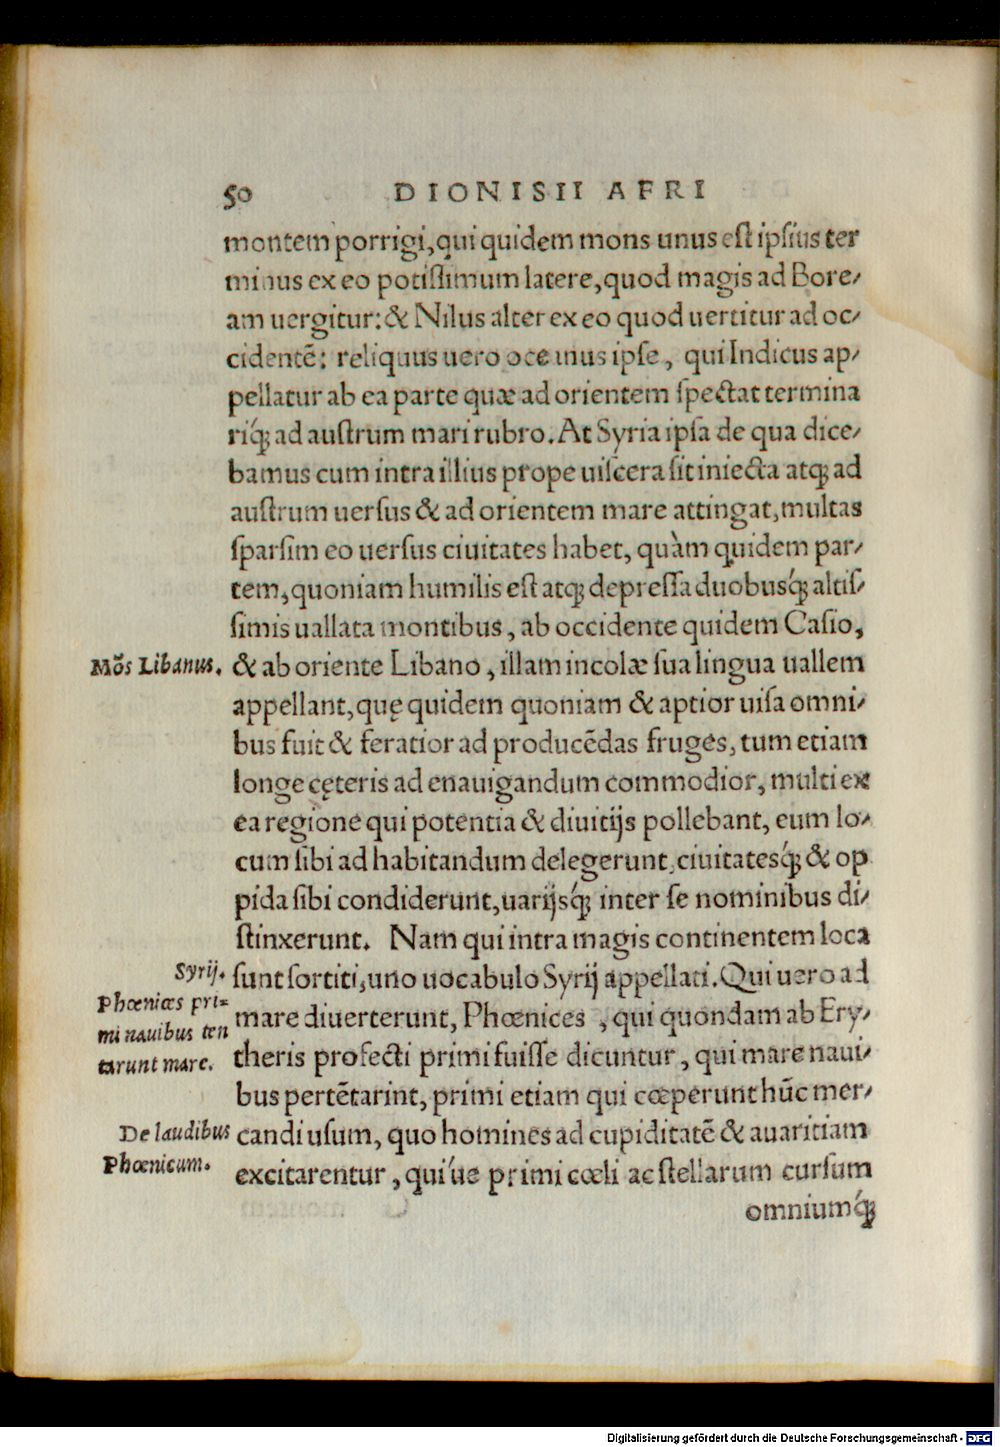 50 DIONISII AFRI
montem porrigi, qui quidem mons unus est ipsius ter
minus ex eo potissimum latere, quod magis ad Bore/
am uergitur: & Nilus alter ex eo quod uertitur ad oc/
cidentē: reliquus uero oceanus ipse, qui Indicus ap/
pellatur ab ea parte quæ ad orientem spectat termina
riq́; ad austrum mari rubro. At Syria ipsa de qua dice/
bamus cum intra illius prope uiscera sit iniecta atq; ad
austrum uersus & ad orientem mare attingat, multas
sparsim eo uersus ciuitates habet, quàm quidem par/
tem, quoniam humilis est atq; depressa duobusq́; altis/
simis uallata montibus, ab occidente quidem Casio,
Mōs Libanus.
& ab oriente Libano, illam incolæ sua lingua uallem
appellant, quę quidem quoniam & aptior uisa omni/
bus fuit & feratior ad producēdas fruges, tum etiam
longe cęteris ad enauigandum commodior, multi ex
ea regione qui potentia & diuitijs pollebant, eum lo/
cum sibi ad habitandum delegerunt, ciuitatesq́; & op
pida sibi condiderunt, uarijsq́; inter se nominibus di/
stinxerunt. Nam qui intra magis continentem loca
Syrij.
sunt sortiti, uno uocabulo Syrij appellati. Qui uero ad
Phœnices pri=
mi nauibus ten
tarunt mare.
mare diuerterunt, Phœnices , qui quondam ab Ery/
theris profecti primi fuisse dicuntur, qui mare naui/
bus pertētarint, primi etiam qui cœperunt hūc mer/
De laudibus
Phœnicum.
candi usum, quo homines ad cupiditatē & auaritiam
excitarentur, qui'ue primi cœli ac stellarum cursum
omniumq́;
Digitalisierung gefördert durch die Deutsche Forschungsgemeinschaft - DFG